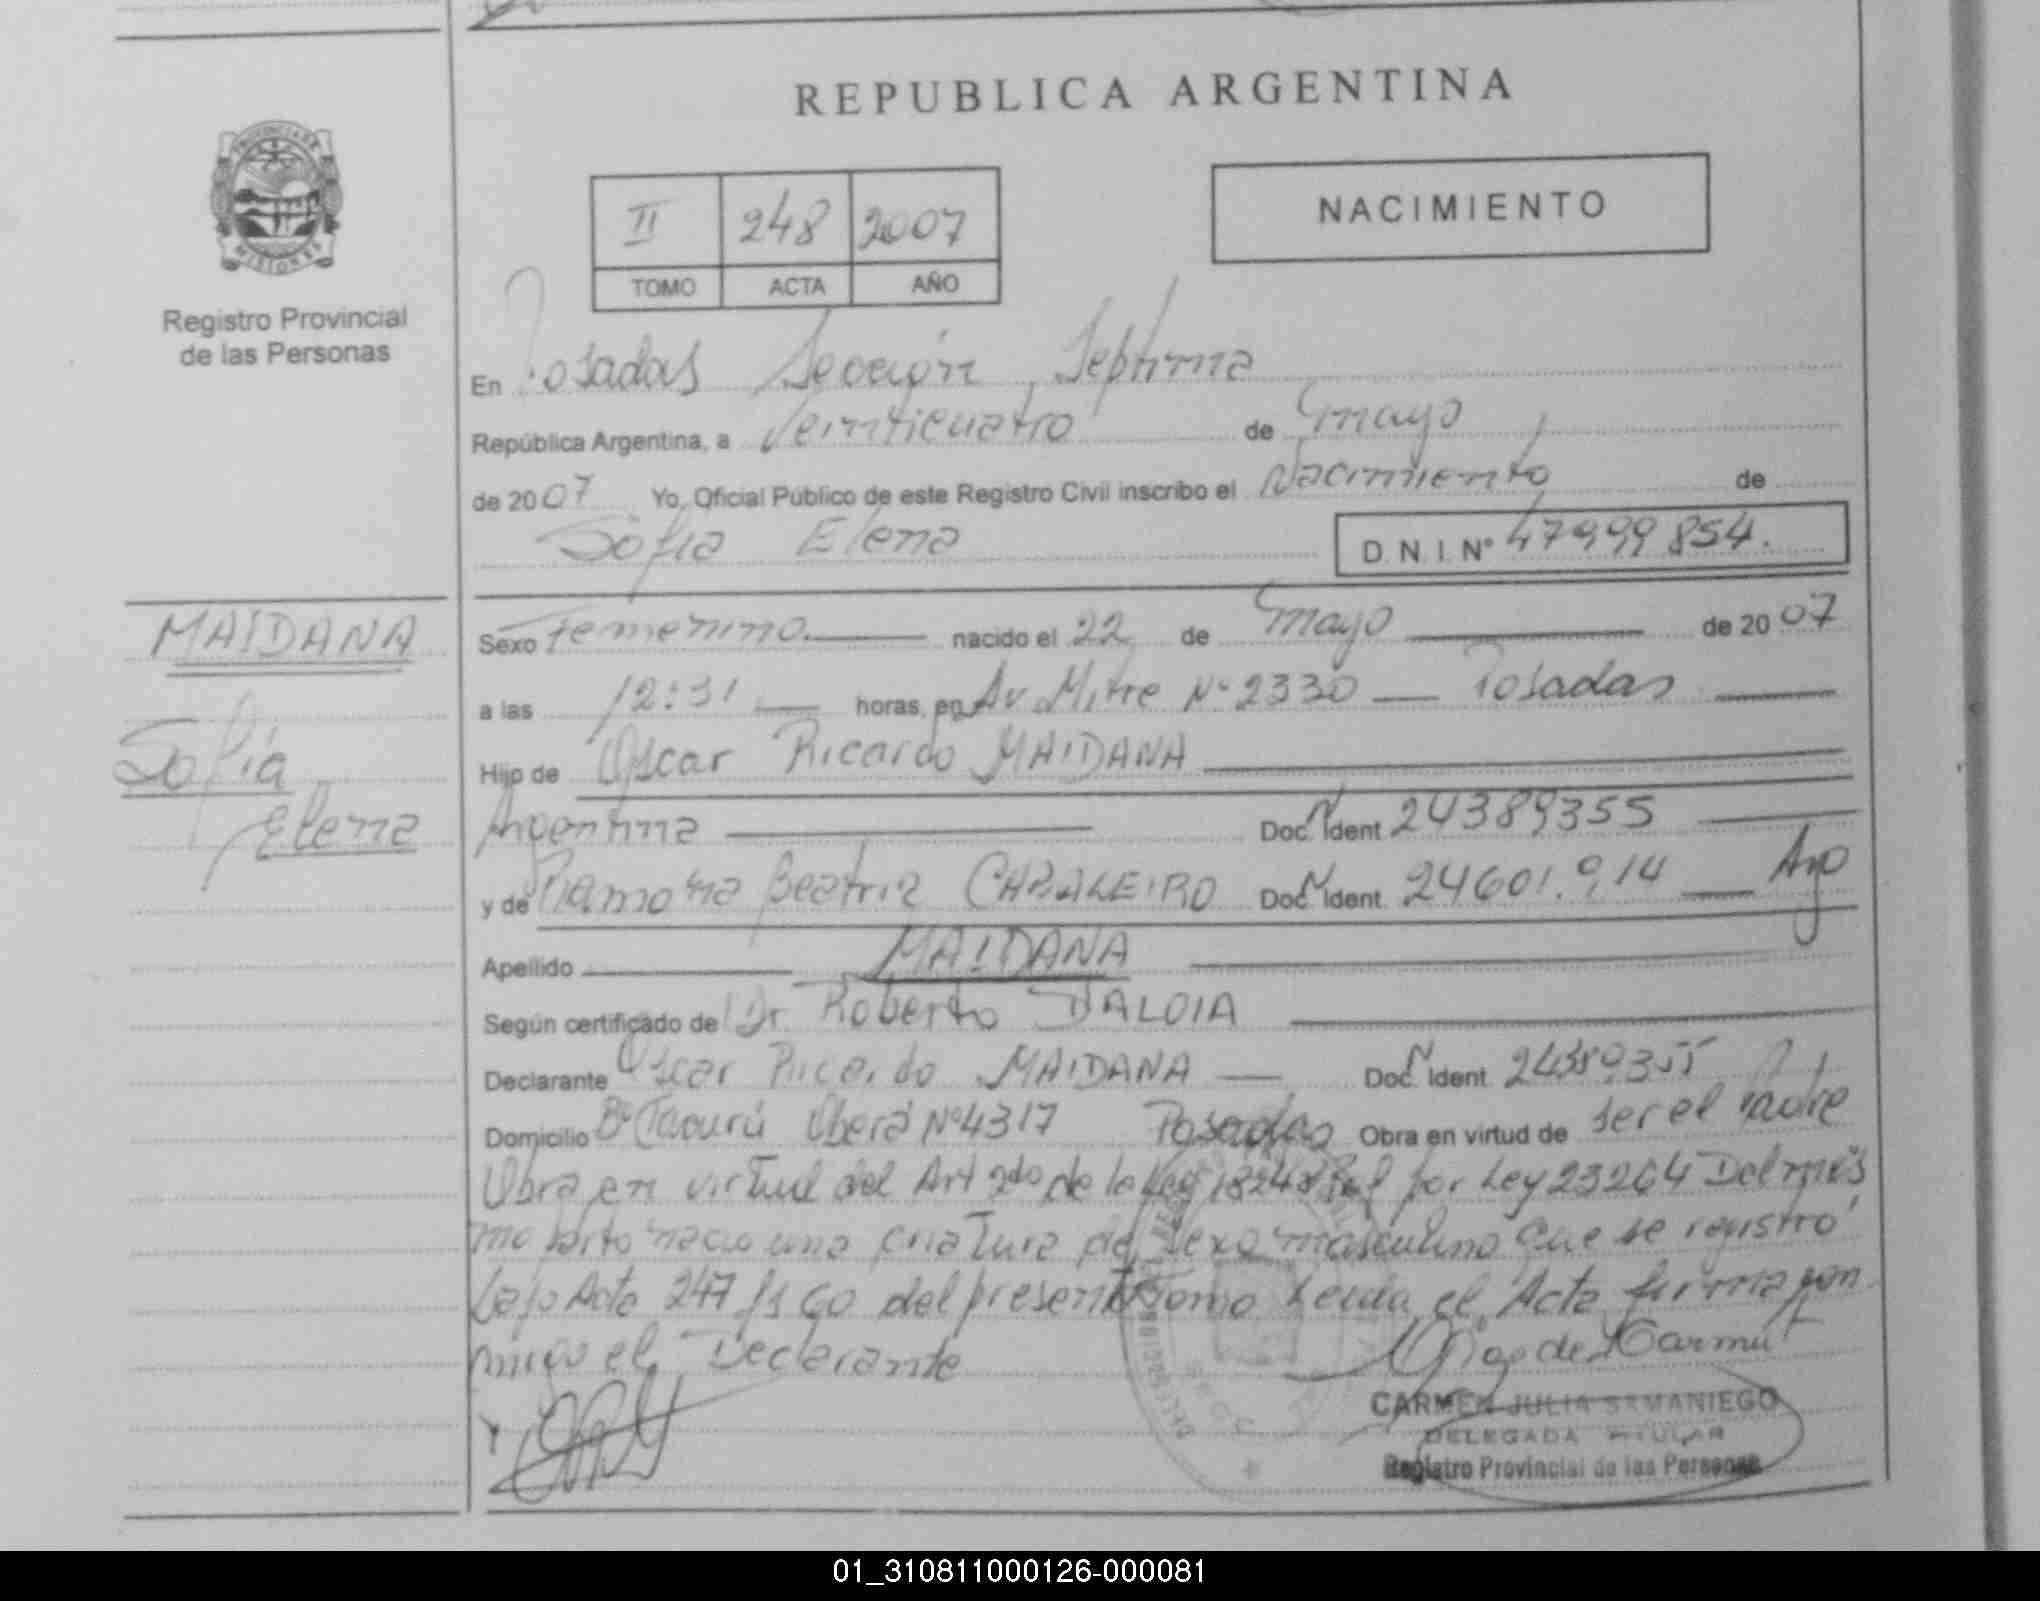 REPUBLICA ARGENTINA
PROVINCIA DE
MISIONES
Registro Provincial
de las Personas
II 248 2007
TOMO ACTA AÑO
NACIMIENTO
En Posadas Sección Septima
República Argentina, a Veinticuatro de mayo
de 2007 Yo, Oficial Público de este Registro Civil inscribo el Nacimiento de
Sofia Elena D.N.I. Nº 47999854.
MAIDANA
Sofía
Elena
Sexo Femenino nacido el 22 de mayo de 2007
a las 12:31 horas, en Av. Mitre Nº 2330 Posadas
Hijo de Oscar Ricardo MAIDANA
Argentina Doc. Ident 24389355
y de Ramona Beatriz Doc. Ident. 24601.914 Arg
Apellido MAIDANA
Según certificado de Dr. Roberto DALOIA
Declarante Oscar Ricardo MAIDANA Doc. Ident. 24389355
Domicilio Bº Tacurú Oberá Nº 4317 Posadas Obra en virtud de ser el Padre
Obra en virtud del Art 2do de la Ley 18248 por Ley 23264 Del mis
mo parto nacio una criatura del sexo masculino que se registró
bajo Acta 247 fs 60 del presente Tomo Leida el Acta firma con
migo el Declarante
CARMEN JULIA SAMANIEGO
DELEGADA TITULAR
Registro Provincial de las Personas
01_310811000126-000081